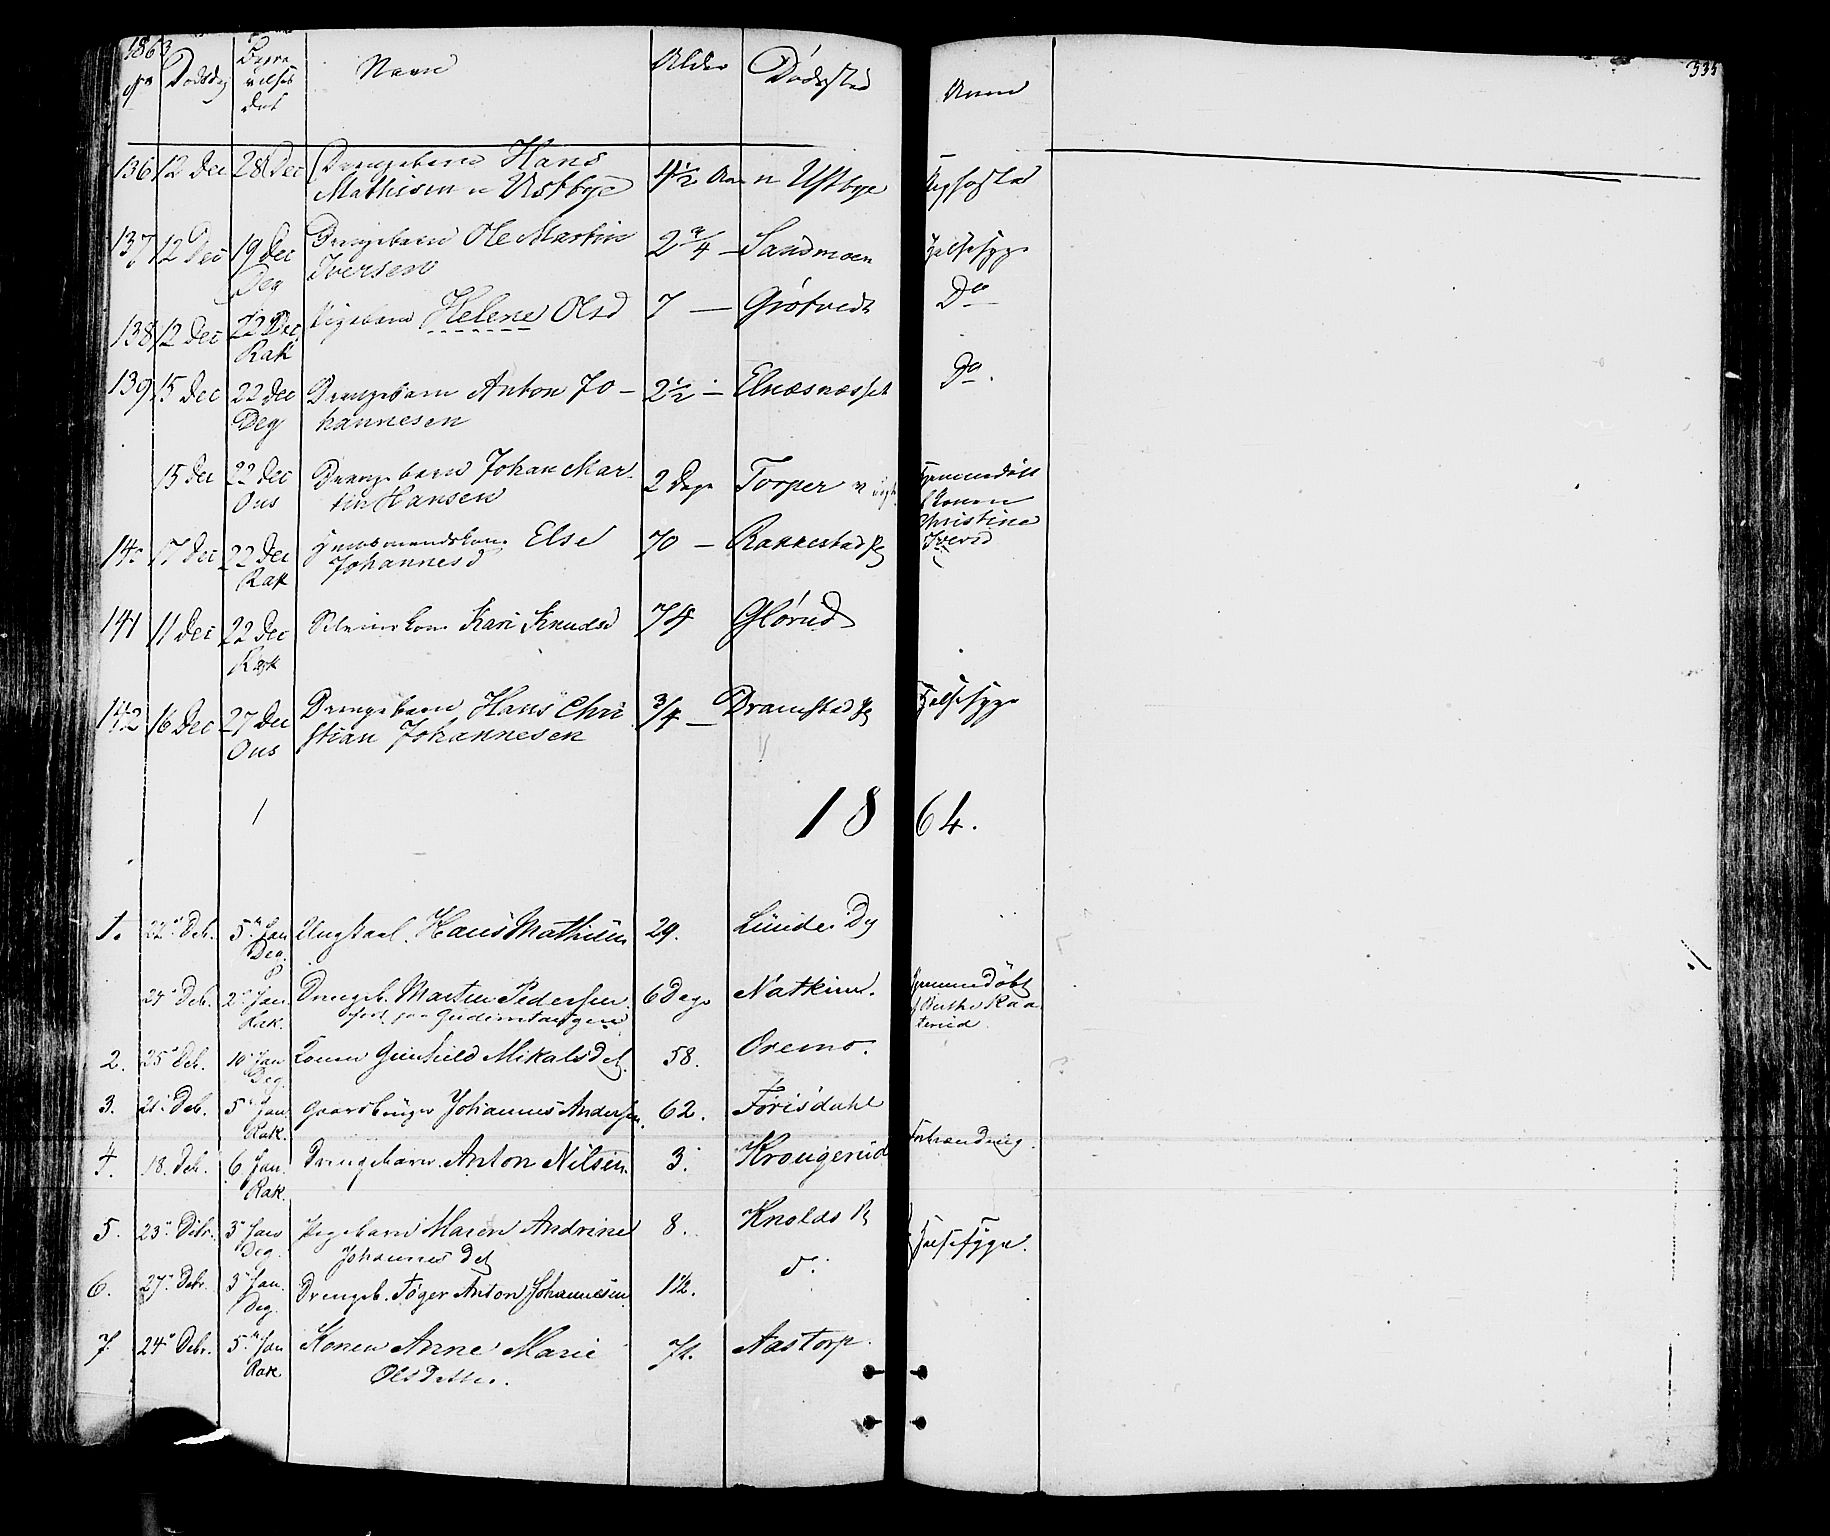 1863
No Dødsdag Begra
velses
dat Navn Alder Dødssted Anm
335
136 12 Dec 28 Dec Drengebarn Hans
Mathisen n Ustbye 4½ Aar n Ustbye
137 12 Dec 19 Dec
Deg Drengebarn Ole Martin
Iversen 2¾ — Sandmoen Halsesyge
138 12 Dec 22 Dec
Rak Pigebarn Helene Olsd 7 — Gjøtvedt Do
139 15 Dec 22 Dec
Deg Drengebarn Anton Jo-
hannesen 2½ — Elnæsnæsset Do.
15 Dec 22 Dec
Ous Drengebarn Johan Mar-
tin Hansen 2 Dage Torper Hjemmedøbt
af Konen
Christine
Iversd
140 17 Dec 22 Dec
Rak Huusmandskone Else
Johannesd 70 — Rakkestad Pg
141 11 Dec 22 Dec
Rak Kari Knudsd 74 Glørud
142 16 Dec 27 Dec
Ous Drengebarn Hans Chri
stian Johannesen ¾ — Dramstad Pg Halsesyge
1864.
1. 22 Deb. 5 Jan
Deg. Ungkarl Hans Mathisen 29. Lunde. Dg
Deb. 2 Jan.
Rak. Drengeb. Martin Pedersen
født paa 6 Dage Natkim. Hjemmedøbt
af Berthe Kaa
terud.
2. 25 Deb. 10 Jan
Deg. Konen Gunhild Mikalsdet. 58. Oremo.
3. 21 Deb. 5 Jan.
Rak. Gaardbruger Johannes Andersen. 62. Førisdahl
4. 18. Deb. 6 Jan.
Rak. Drengebarn Anton Nilsen 3. Krougerud
5. 23 Debr. 3 Jan
Deg. Pigebarn Maren Andrine
Johannesdet 8. Knolds Halsesyge.
6. 27 Debr. 3 Jan.
Deg. Drengeb. Tøger Anton Johannesen 1½. d.
7. 24 Debr. 5 Jan
Rak Konen Anne Marie
Olsdatter. 71. Aastorp.